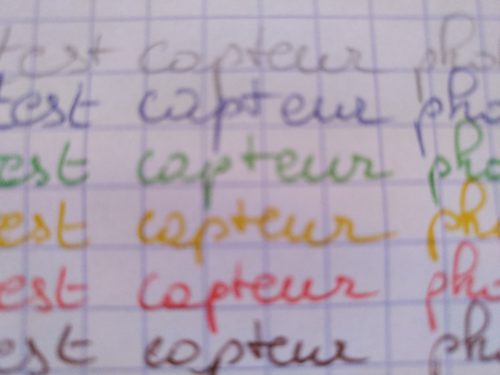 test capteur pho
test capteur pho
est capteur pho
est capteur pho
est capteur pho
est capteur pho